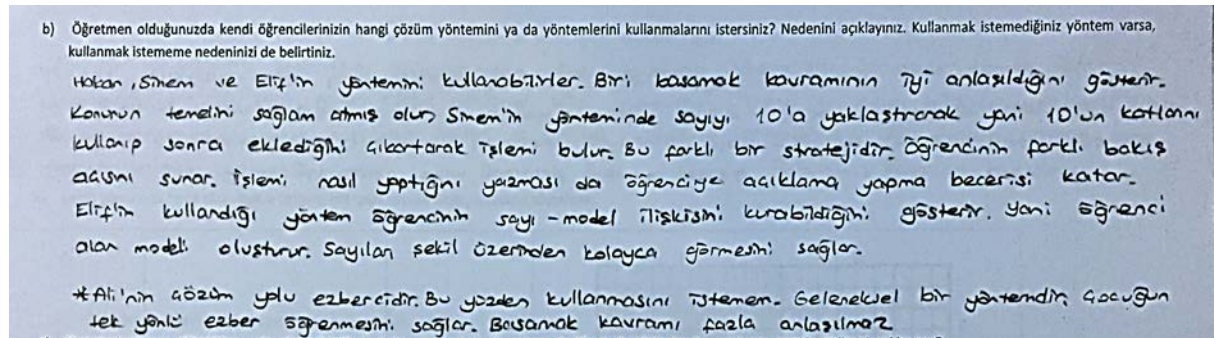 b) Öğretmen olduğunuzda kendi öğrencilerinizin hangi çözüm yöntemini ya da yöntemlerini kullanmalarını istersiniz? Nedenini açıklayınız. Kullanmak istemediğiniz yöntem varsa,
kullanmak istememe nedeninizi de belirtiniz.
Hakan, Sinem ve Elif'in yöntemini kullanabilirler. Biri basamak kavramının iyi anlaşıldığını gösterir.
Konunun temelini sağlam atmış olur. Sinem'in yönteminde sayıyı 10'a yaklaştırarak yani 10'un katlarını
kullanıp sonra eklediğini çıkartarak işlemi bulur. Bu farklı bir stratejidir. Öğrencinin farklı bakış
açısını sunar. İşlemi nasıl yaptığını yazması da öğrenciye açıklama yapma becerisi katar.
Elif'in kullandığı yöntem öğrencinin sayı-model ilişkisini kurabildiğini gösterir. Yani öğrenci
alan modeli oluşturur. Sayıları şekil üzerinden kolayca görmesini sağlar.
*Ali'nin çözüm yolu ezbercidir. Bu yüzden kullanmasını istemem. Geleneksel bir yöntemdir, çocuğun
tek yönlü ezber öğrenmesini sağlar. Basamak kavramı fazla anlaşılmaz